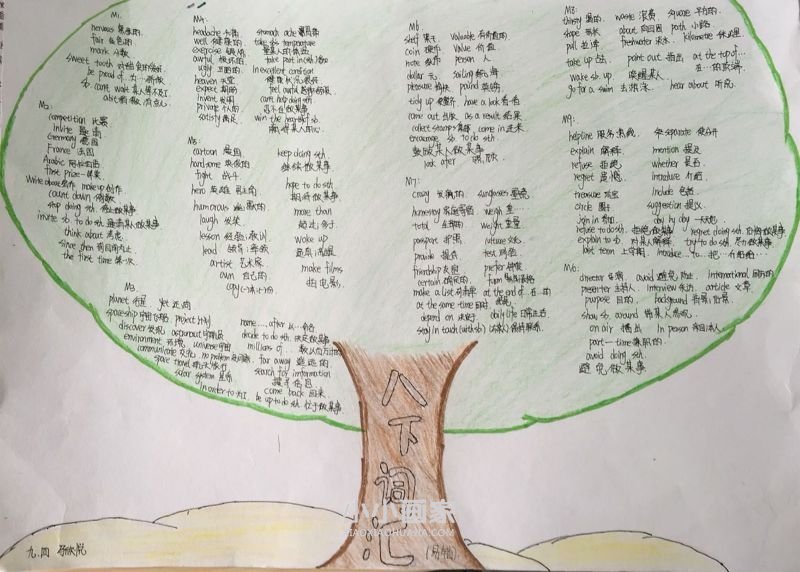 M1.
nervous 紧张的.
fair 白色的
mark 分数
sweet tooth 对甜食的爱好
be proud of 为…骄傲
so can't wait 某人等不及了
a bit 稍微, 有点儿
M2:
competition 比赛
invite 邀请
Chermany 德国
France 法国
Arabic 阿拉伯的
first prize 一等奖
Write about 写作 make up 创作
count down 倒数
stop doing sth 停止做某事
invite sb to do sth 邀请某人做某事
think about 考虑
since then 从那时起
the first time 第一次.
M3.
planet 行星 yet 还,尚
spaceship 宇宙飞船 project 计划
discover 发现 astronaut 宇航员
environment 环境 universe 宇宙
communicate 交流 no problem 没问题
space travel 航天旅行
solar system 星系
in order to 为了.
name....after 以…命名
decide to do sth 决定做某事
millions of...
far away 遥远的.
search for imformation
搜寻信息
come back 回来
be up to do sth
M4.
headache 头痛
well 健康的.
exercise 锻炼
awful 极坏的
ugly 丑陋的
heaven 天堂
expect 期盼
invent 发明
private 私人的.
satisfy 满足
stomach ache 胃疼
take sb's temperature
量某人的体温
take part in 参加
in excellent condition
健康状况很好
feel awful 感到很糟
can't help doing sth
忍不住做某事
win the heart of sb
赢得某人的心.
M5:
cartoon 漫画
handsome 英俊的
fight 战斗
hero 英雄,男主角
humorous 幽默的
laugh 发笑.
lesson 经验;教训
lead 领导;率领
artist 艺术家
own 自己的
copy (一)本;(一)份
keep doing sth.
继续做某事.
hope to do sth
期待做某事
more than
超过;多于.
wake up
醒来;唤醒
make films
拍电影.
M6
shelf 架子. valuable 有价值的
coin 硬币 value 价值
note 纸币 person 人
dollar 元 sailing
pleasure 愉快 pound 英镑
tidy up 收拾整齐 have a look 看一看
come out 出版 as a result 结果
collect stamps 集邮 come in 进来
encourage sb to do sth
鼓励某人做某事
look after 照顾
M7:
crazy 发疯的. sunglasses 墨镜
homestay 家庭寄宿 weigh 重…
total 全部的 weight 重量
passport 护照 culture 文化
provide 提供 test 测验
friendship 友谊 prefer 偏爱
certain 确定的. form
make a list 列清单 at the end of 在…的
at the same time 同时
depend on 决定于 daily life 日常生活
stay in touch (with sb) (与某人)保持联系
M8:
thirsty 渴的. waste 浪费. square 平方的.
shape 形状 about 向四周 path 小路
pull 拉,拽 freshwater 淡水. kilometre 千米,公里
take up 占去 point out 指出 at the top of…
在…的顶端
wake sb up 唤醒某人
go for a swim 去游泳. hear about 听说.
M9:
helpline 服务热线 separate 使分开
explain 解释 mention 提及
refuse 拒绝 whether 是否.
regret 后悔 introduce 介绍
treasure 珍宝 include 包括
circle 圈子 suggestion 提议.
join in 参加 day by day 一天天地.
refuse to do sth. 拒绝做某事 regret doing sth 后悔做某事
explain to sb 对某人解释 try to do sth. 尽力做某事
last term 上学期 introduce...to. 把…介绍给…
M10:
director 导演. avoid 避免,防止. international 国际的
presenter 主持人. interview 采访. article 文章.
purpose 目的. background 背景;后景.
show sb around 带某人参观.
on air 播出 In person 亲自,本人
part-time 兼职的.
avoid doing sth.
避免做某事
八下词汇
(外研)
九.四
小小画家
XIAOXIAOHUAJIA.COM